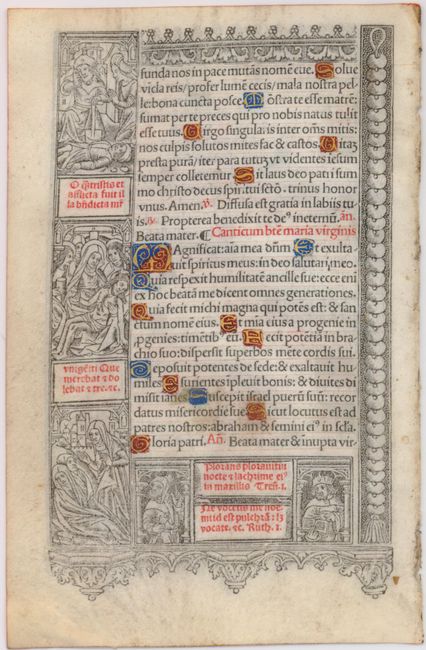 funda nos in pace mutãs nomẽ eue. Solue
vicla reis/ profer lumẽ cecis/ mala nostra pel
le: bona cuncta posce. Mõstra te esse matrẽ:
sumat per te preces qui pro nobis natus tulit
esse tuus. Virgo singularis inter oẽs mitis:
nos culpis solutos mites fac & castos. Vitaz
presta purã/ iter para tutuz vt videntes iesum
semper colletemur. Sit laus deo patri sum
mo christo decus spiritui sctõ. trinus honor
vnus. Amen. Diffusa est gratia in labiis tu
is. Propterea benedixit te de⁹ in eternũ. añ.
Beata mater. ¶ Canticum btẽ marie virginis
MAgnificat: aĩa mea dñm Et exulta
uit spiritus meus: in deo salutari meo.
Quia respexit humilitatẽ ancille sue: ecce eni
ex hoc beatã me dicent omnes generationes.
Quia fecit michi magna qui potẽs est: & san
ctum nomẽ eius. Et mia eius a progenie in
pgenies: timẽtib⁹ eũ. Fecit potẽtia in bra
chio suo: dispersit superbos mẽte cordis sui.
Deposuit potentes de sede: & exaltauit hu
miles Esurientes ipleuit bonis: & diuites di
misit ianes Suscepit israel puerũ suũ: recor
datus misericordie sue Sicut locutus est ad
patres nostros: abraham & semini ei⁹ in scła.
Gloria patri. Añ. Beata mater & inupta vir-
O q̃ tristis et
afflicta fuit il
la bñdicta mr̃
vnigẽiti Que
merebat & do
lebat & tre. &c.
Plorans plorauit in
nocte & lachrime ei⁹
in maxillis Tren. i.
Ne vocetis me noe
mi id est pulchrã: sz
vocate. &c. Ruth. i.